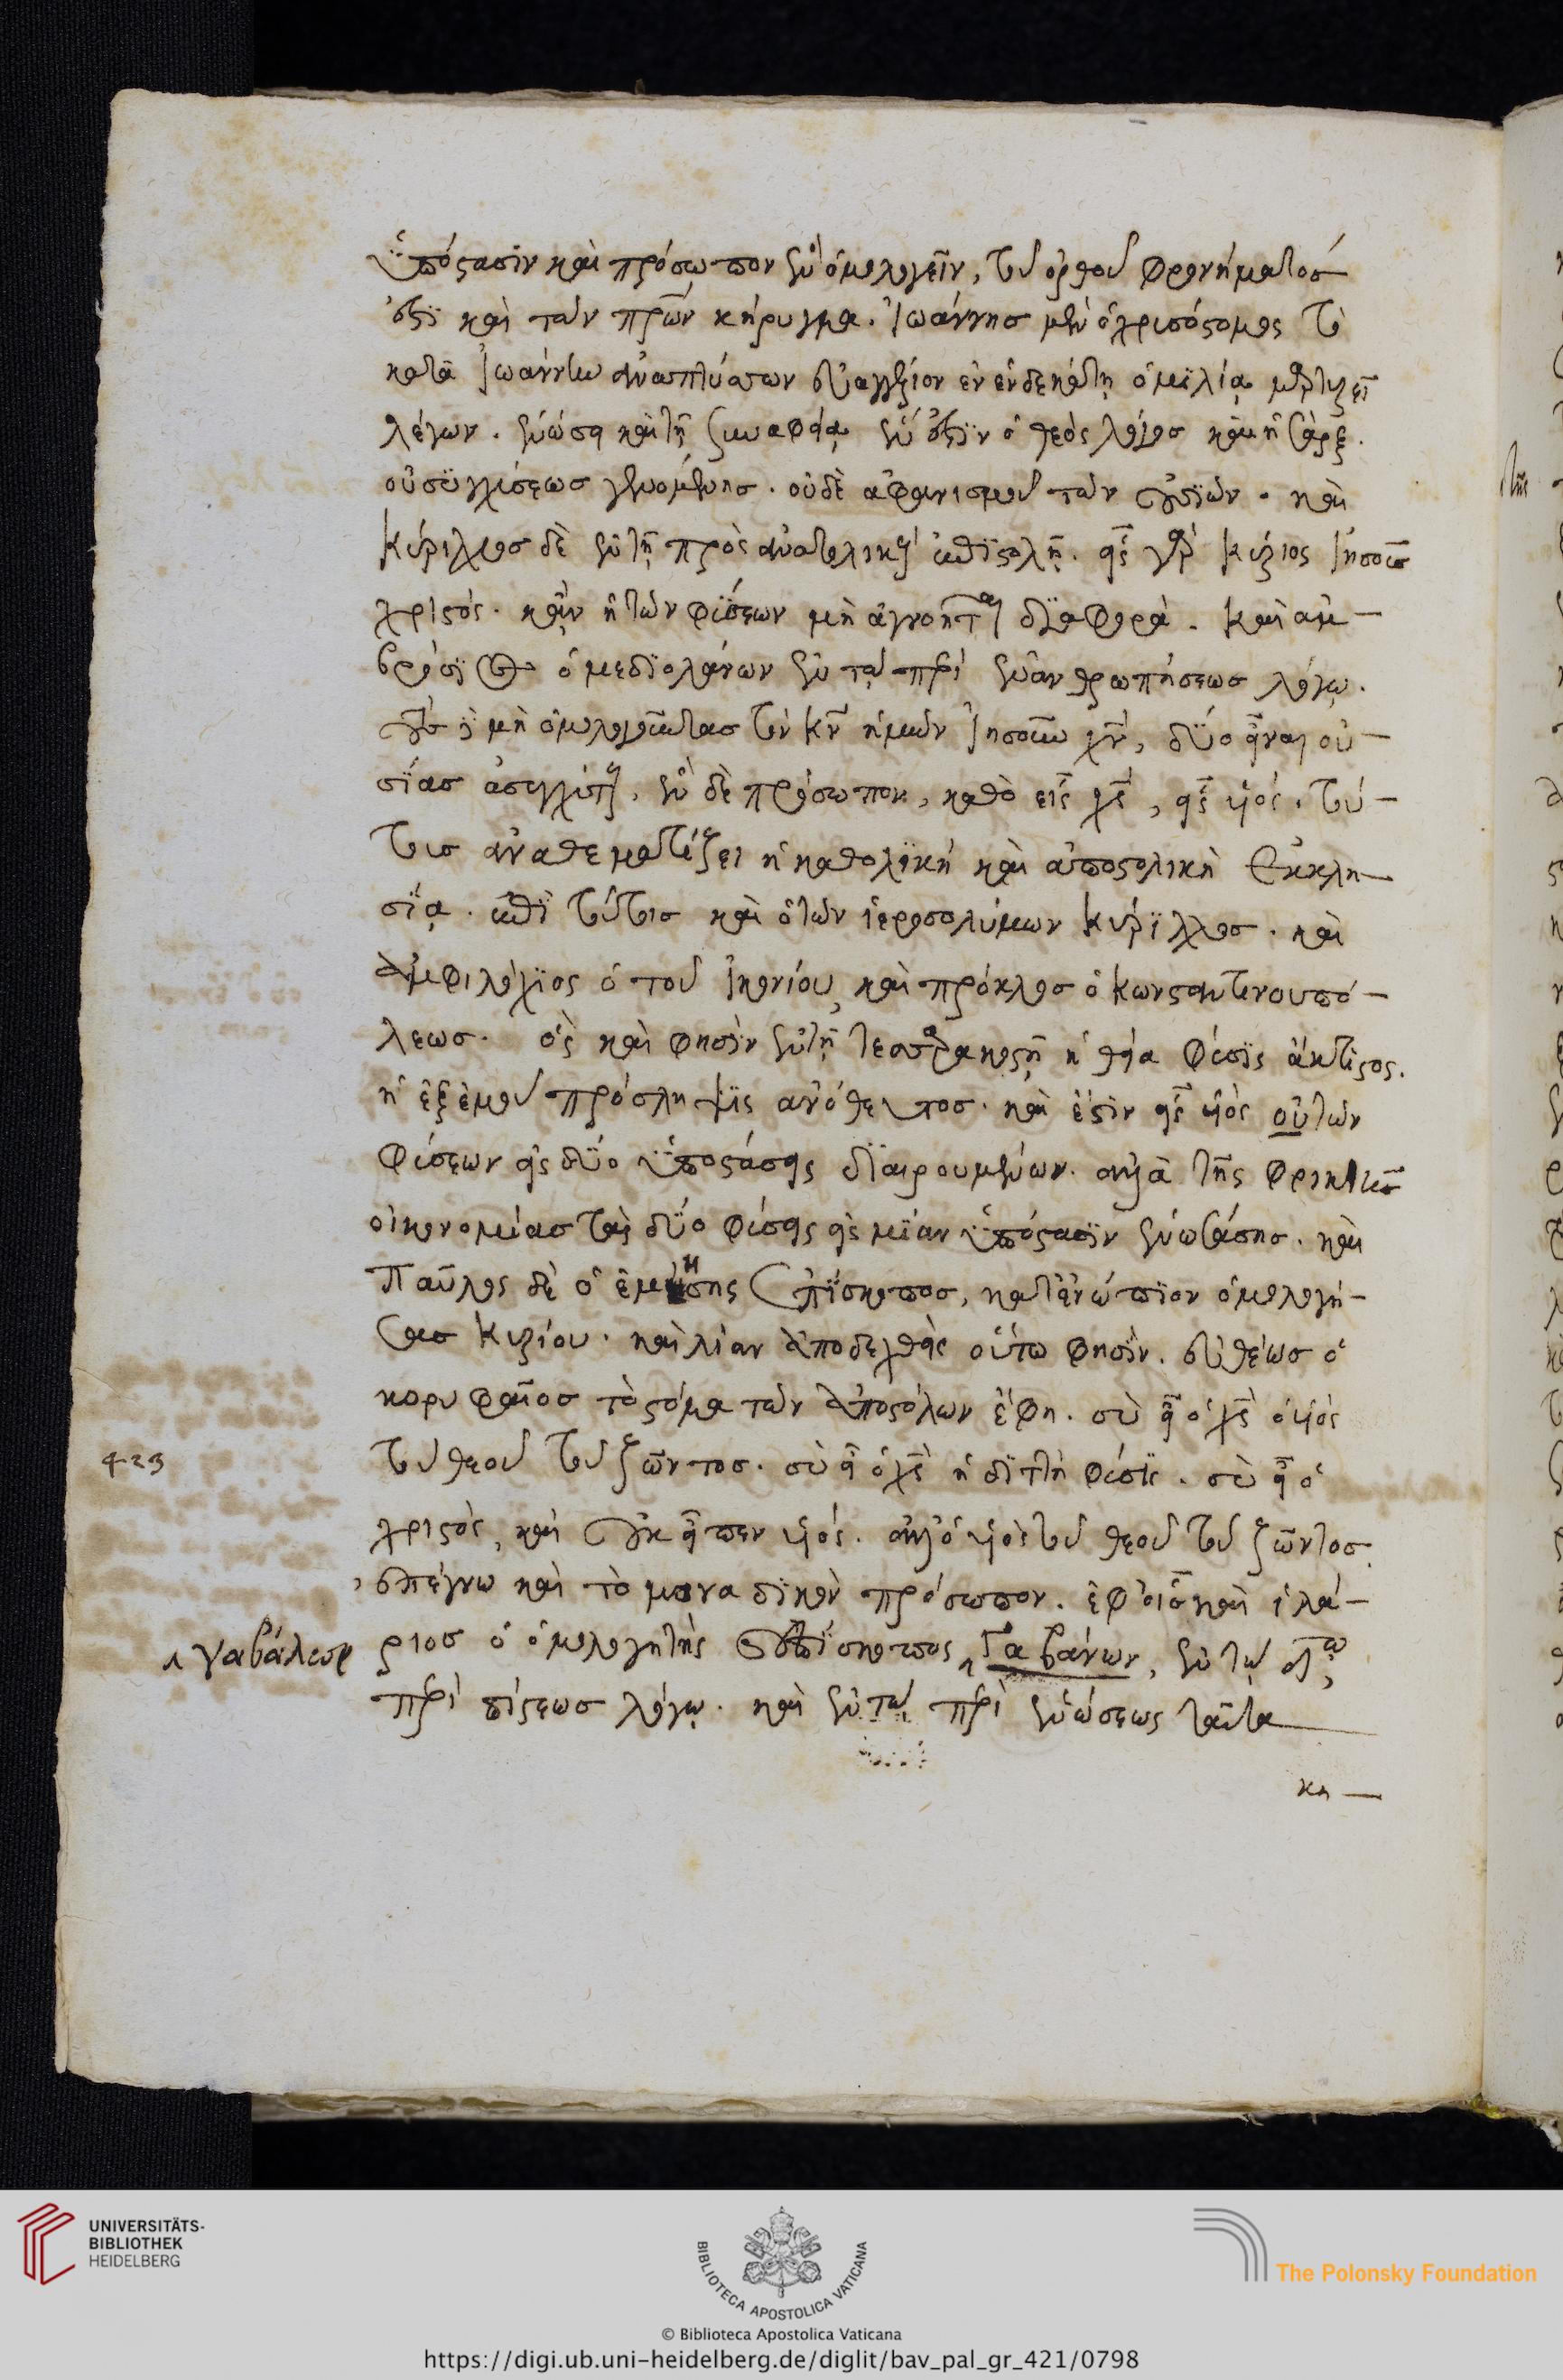 ὑπόστασιν καὶ πρόσωπον ἓν ὁμολογεῖν, τοῦ ὀρθοῦ φρονήματός
ἐστι καὶ τῶν πρων κήρυγμα. Ἰωάννης μὲν ὁ χρισόστομος τὸ
κατὰ Ἰωάννην ἀναπτύσσων εὐαγγέλιον ἐν ἑνδεκάτῃ ὁμιλίᾳ μαρτυρεῖ
λέγων. ἑνώσει καὶ τῇ συναφείᾳ ἓν ἐστὶν ὁ θεὸς λόγος καὶ ἡ σάρξ.
οὐ συγχύσεως γενομένης. οὐδὲ ἀφανισμοῦ τῶν οὐσιῶν. καὶ
Κύριλλος δὲ ἐν τῇ πρὸς ἀνατολικοὺς ἐπιστολῇ. εἷς γὰρ Κύριος Ἰησοῦς
χριστός. κἂν ἡ τῶν φύσεων μὴ ἀγνοῆται διαφορά. Καὶ ἀμ-
βρόσιος ὁ μεδιολάνων ἐν τῷ περὶ ἐνανθρωπήσεως λόγῳ.
τοὺς μὴ ὁμολογοῦντας τὸν κν ἡμῶν Ἰησοῦν χν, δύο εἶναι οὐ-
σίας ἀσυγχύτους, ἓν δὲ πρόσωπον, καθὸ εἷς χς, εἷς υἱός. τού-
τους ἀναθεματίζει ἡ καθολικὴ καὶ ἀποστολικὴ Ἐκκλη-
σία. ἐπὶ τούτοις καὶ ὁ τῶν ἱεροσολύμων Κύριλλος. καὶ
ἀμφιλόχιος ὁ τοῦ Ἰκονίου, καὶ πρόκλος ὁ Κωνσταντινουπό-
λεως. ὃς καὶ φησὶν ἐν τῇ τεσσαρακοστῇ ἡ θεία φύσις ἄκτιστος.
ἡ ἐξ ἐμοῦ πρόσληψις ἀνόθευτος. καὶ ἔστιν εἷς υἱὸς οὐ τῶν
φύσεων εἰς δύο ὑποστάσεις διαιρουμένων. ἀλλὰ τῆς φρικτῆς
οἰκονομίας τὰς δύο φύσεις εἰς μίαν ὑπόστασιν ἑνωσάσης. καὶ
Παῦλος δὲ ὁ ἐμήσης ἐπίσκοπος, κατενώπιον ὁμολογή-
σας Κυρίου. καὶ λίαν ἀποδεχθεὶς οὕτω φησὶν. εὐθέως ὁ
κορυφαῖος τὸ στόμα τῶν ἀποστόλων ἔφη. σὺ εἶ ὁ χς ὁ υἱὸς
τοῦ θεοῦ τοῦ ζῶντος. σὺ εἶ ὁ χς ἡ διπλὴ φύσις. σὺ εἶ ὁ
χριστὸς, καὶ οὐκ εἶπεν υἱός. ἀλλ' ὁ υἱὸς τοῦ θεοῦ τοῦ ζῶντος.
ἐπέγνω καὶ τὸ μοναδικὸν πρόσωπον. ἐφ' οἷς καὶ ἱλά-
ριος ὁ ὁμολογητὴς ἐπίσκοπος Γαβάνων, ἐν τῷ
περὶ πίστεως λόγῳ. καὶ ἐν τῷ περὶ ἑνώσεως ταῦτα
κη
423
γαβάλεων
UNIVERSITÄTS-
BIBLIOTHEK
HEIDELBERG
BIBLIOTECA APOSTOLICA VATICANA
The Polonsky Foundation
© Biblioteca Apostolica Vaticana
https://digi.ub.uni-heidelberg.de/diglit/bav_pal_gr_421/0798